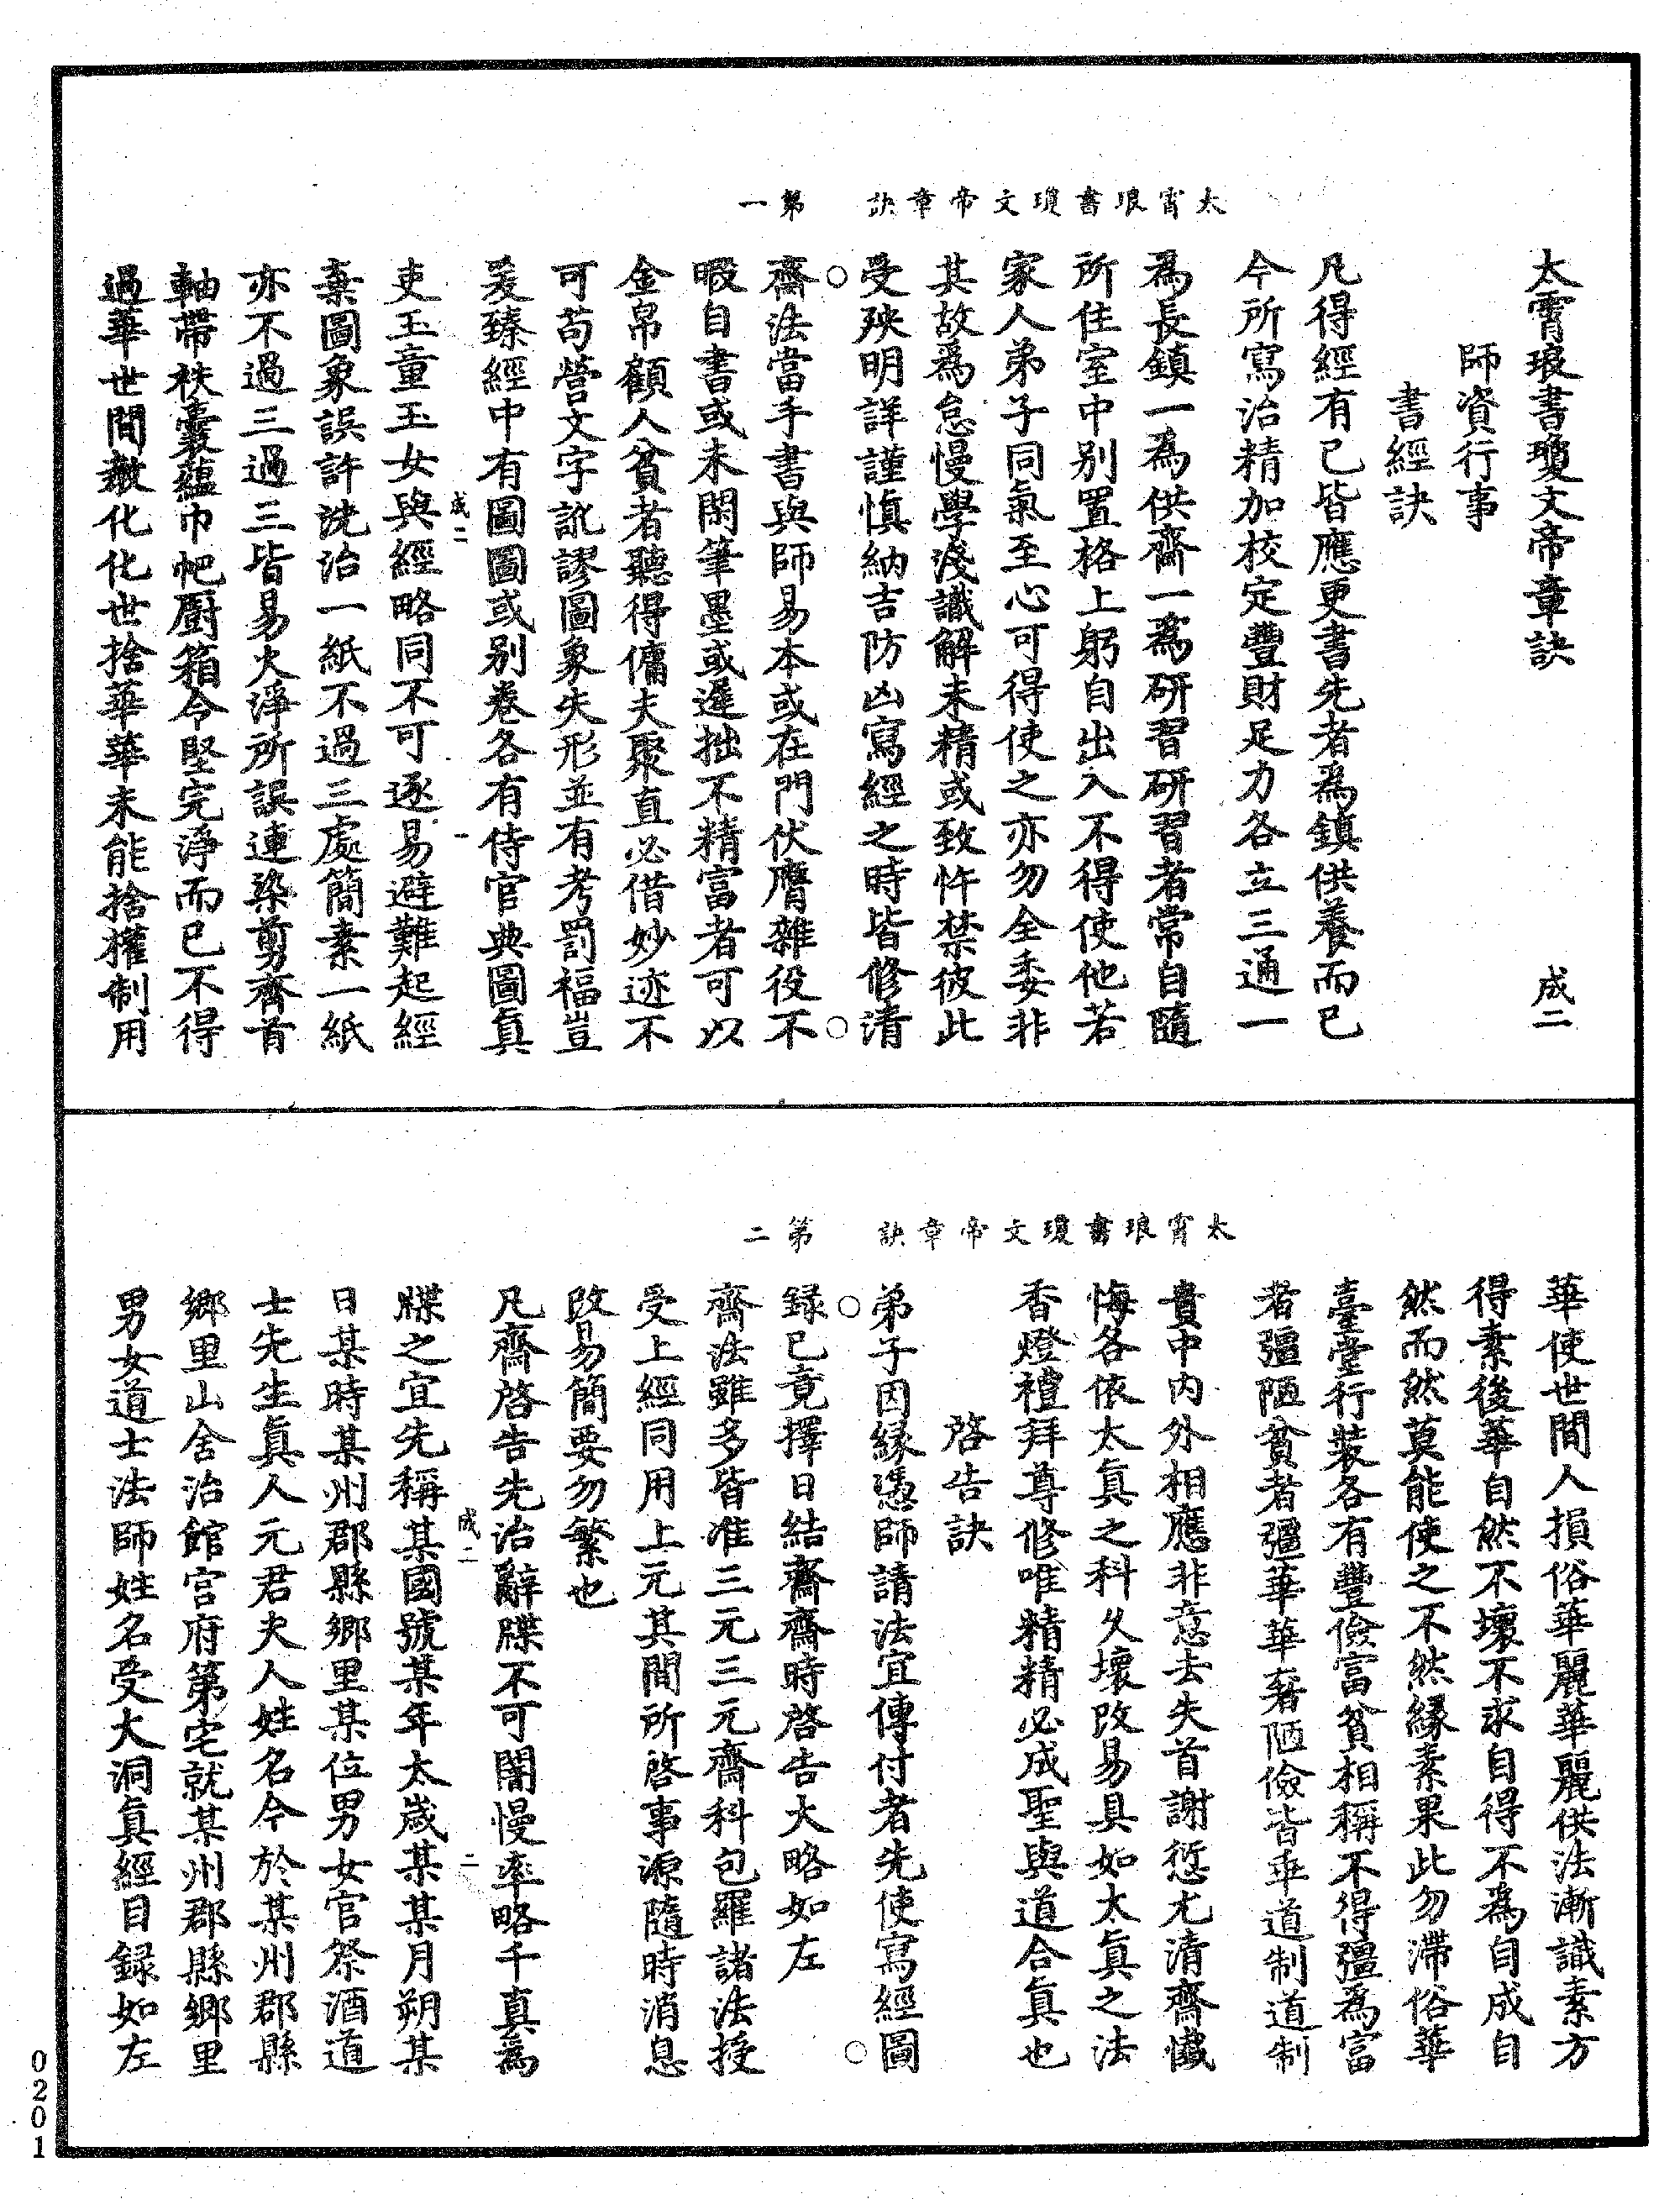 太霄琅書瓊文帝章訣　第一
太霄琅書瓊文帝章訣　成二
師資行事
書經訣
凡得經有已皆應更書先者為鎮供養而已
今所寫治精加校定豐財足力各立三通一
為長鎮一為供齋一為研習研習者常自隨
所住室中别置格上躬自出入不得使他若
家人弟子同氣至心可得使之亦勿全委非
其故爲怠慢學淺識解未精或致忤禁彼此
受殃明詳謹慎納吉防凶寫經之時皆修清
齋法當手書與師易本或在門伏膺雜役不
暇自書或未閑筆墨或遲拙不精富者可以
金帛顧人貧者聽得傭夫聚直必借妙迹不
可苟營文字訛謬圖象失形並有考罰福豈
爰臻經中有圖圖或别卷各有侍官典圖真
成二　一
吏玉童玉女與經略同不可逐易避難起經
棄圖象誤許洗治一紙不過三處簡素一紙
亦不過三過三皆易火淨所誤連染剪齊首
軸帶袟囊蘊巾帊厨箱令堅完淨而已不得
過華世間數化化世捨華華未能捨權制用
太霄琅書瓊文帝章訣　第二
華使世間人損俗華麗華麗供法漸識素方
得素後華自然不壞不求自得不為自成自
然而然莫能使之不然緣素果此勿滯俗華
臺臺行裝各有豐儉富貧相稱不得彊爲富
者彊陋貧者彊華華奢陋儉皆乖道制道制
貴中内外相應非意去失首謝愆尤清齋懺
悔各依太真之科久壞改易具如太真之法
香燈禮拜尊修唯精精必成聖與道合真也
啓告訣
弟子因緣憑師請法宜傳付者先使寫經圖
録已竟擇日結齋齋時啓告大略如左
齋法雖多皆准三元三元齋科包羅諸法授
受上經同用上元其間所啓事源隨時消息
改易簡要勿繁也
凡齋啓告先治辭牒不可闇慢率略干真爲
成二　二
牒之宜先稱某國號某年太歲某某月朔某
日某時某州郡縣鄉里某位男女官祭酒道
士先生真人元君夫人姓名今於某州郡縣
鄉里山舍治館宫府第宅就某州郡縣鄉里
男女道士法師姓名受大洞真經目録如左
0201